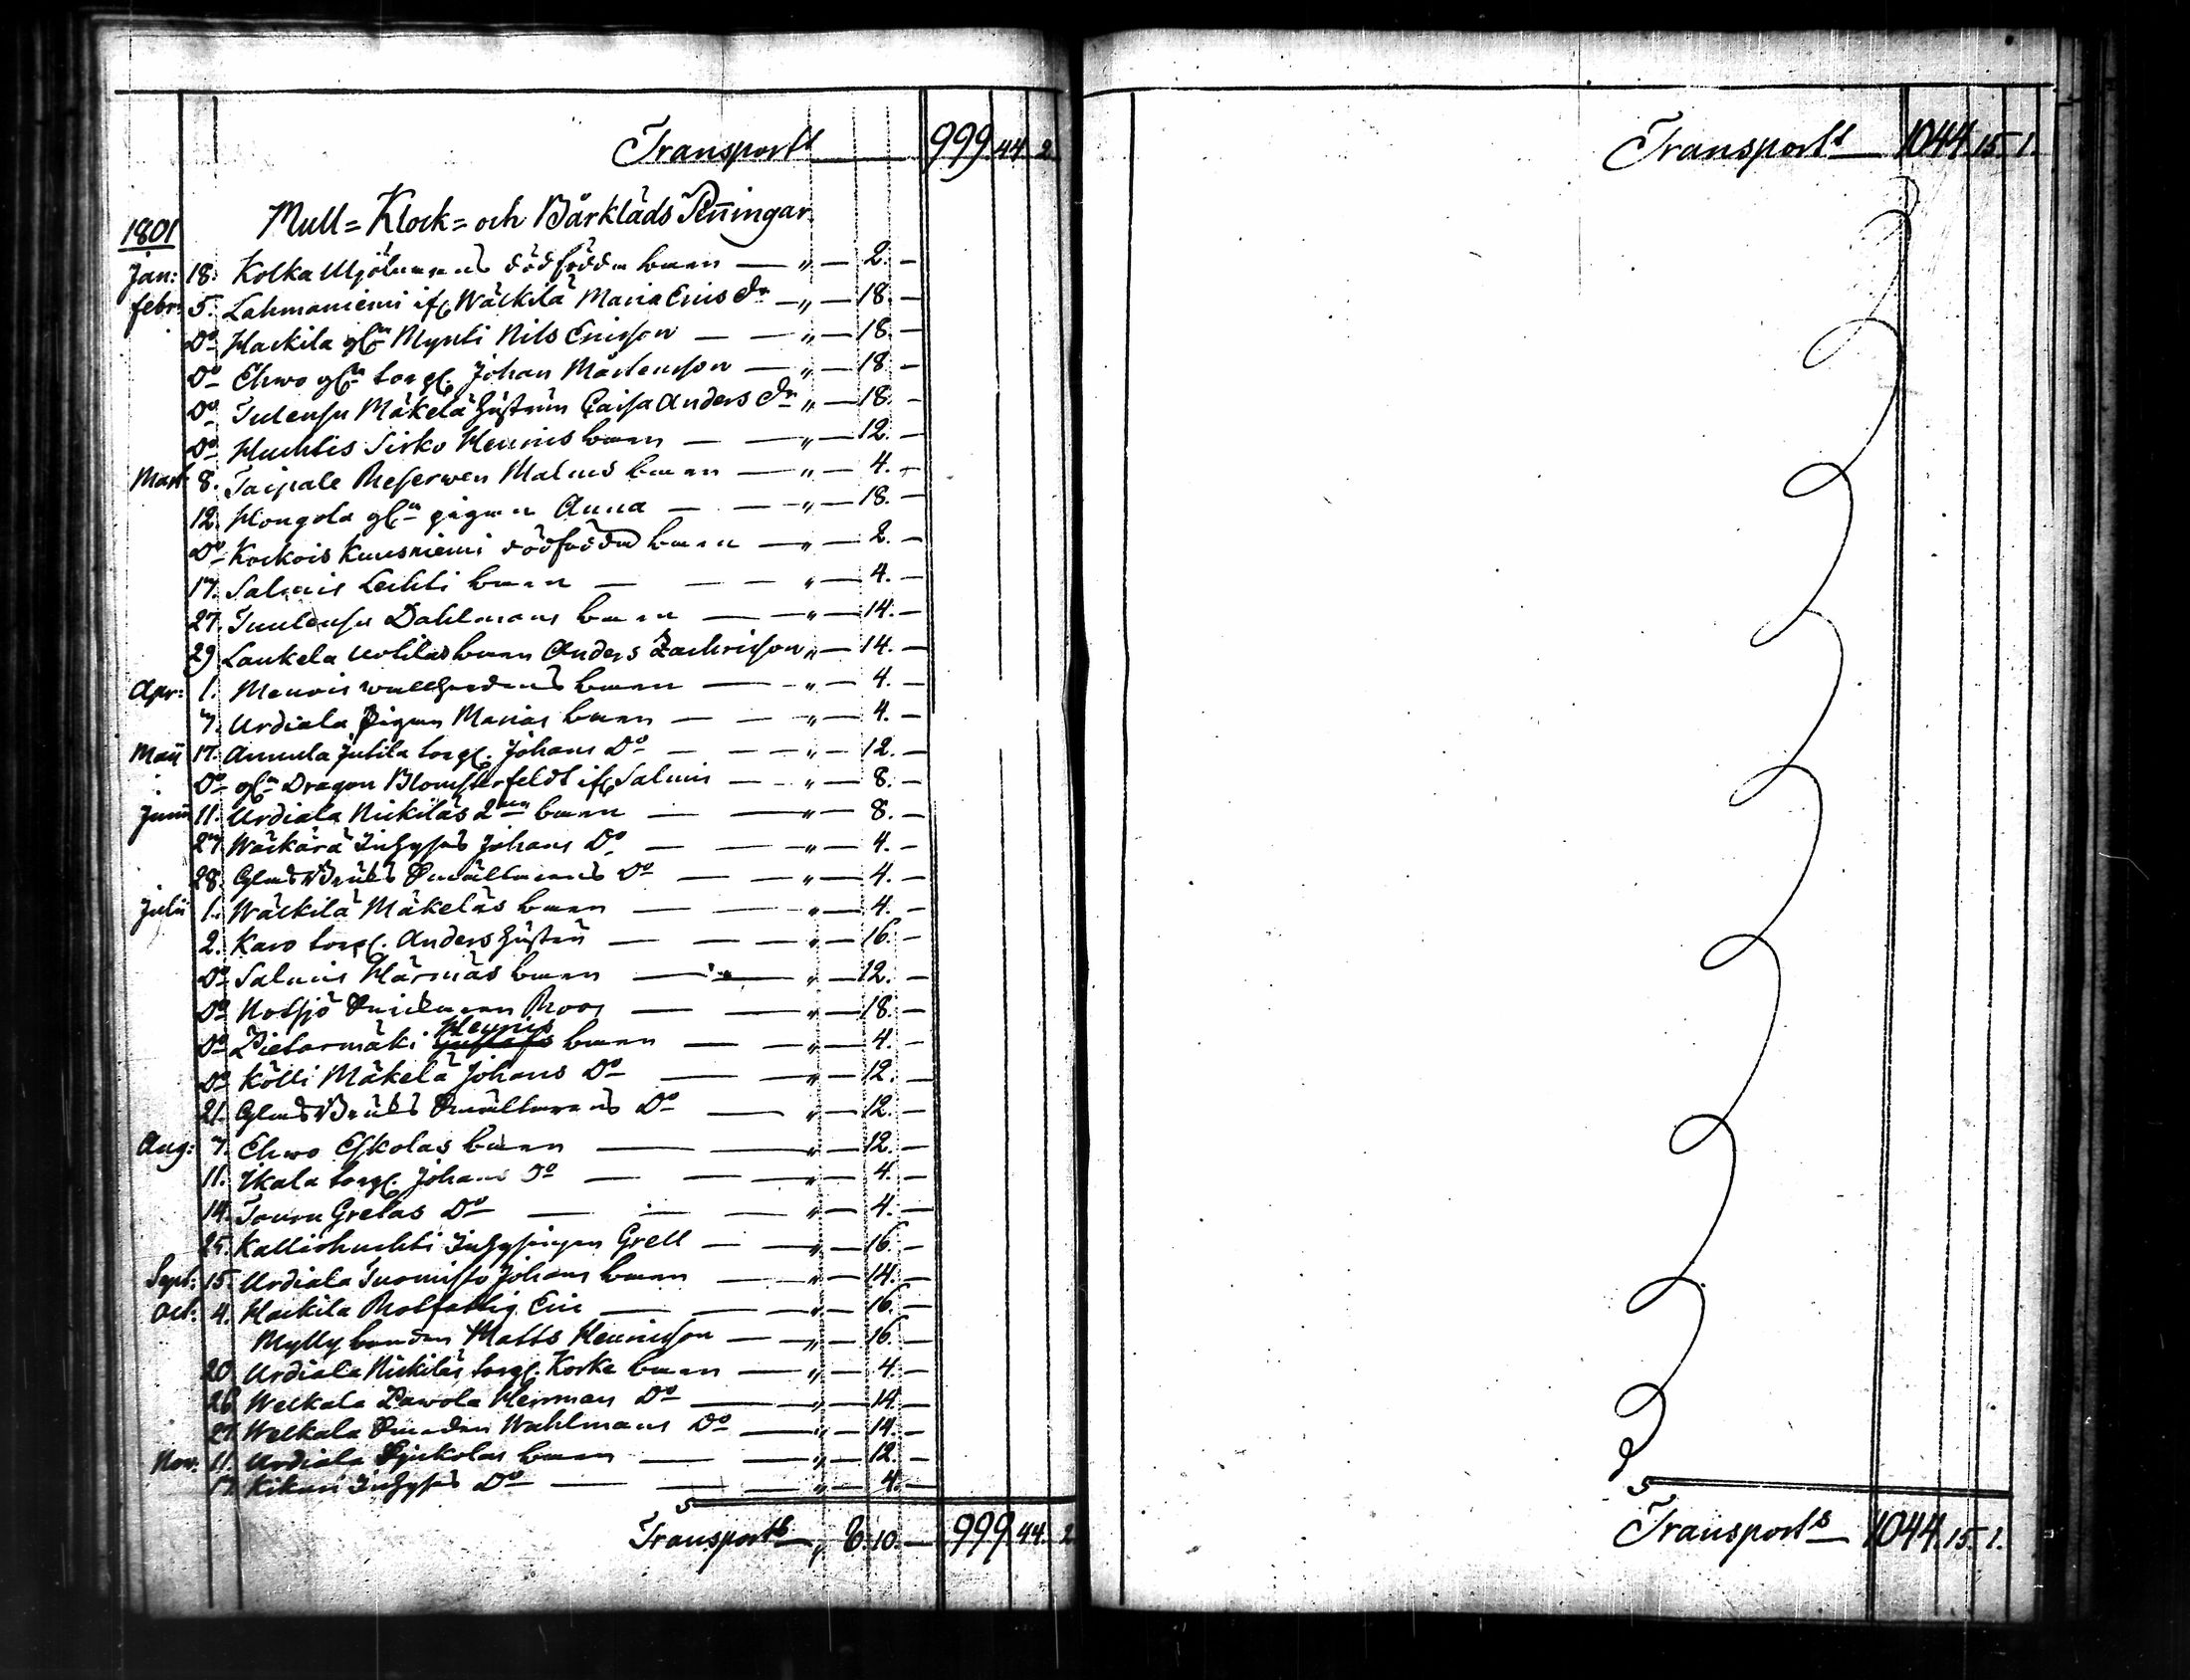 Transport 999. 44. 2
Mull= Klock= och Bårkläds Peñingar
1801
Jan: 18. Kolka Mjölnarens dödfödda barn — " — 2. —
febr: 5. Lahmaniemi if Wäckilä Maria Erisdr — " — 18. —
Do Hackila gln Mynti Nils Ericsson — " — 18. —
Do Ehwo gln torp. Johan Mårtensson — " — 18 —
Do Tulensu Mäkelä Hustrun Caisa Andersdr " — 18. —
Do Huchtis Sirko Henrics barn — " — 12. —
Mart 8. Taipale Reserven Malms barn — " — 4. —
12. Hongola gln pigan Anna — " — 18. —
Do Kockois Kuusniemi dödfödda barn — " — 2. —
17. Salmis Lechti barn — " — 4. —
27. Tuulensu Dahlmans barn — " — 14. —
29 Laukela Uotilas barn Anders Zachrisson " — 14. —
Apr: 1. Menois barn — " — 4. —
7. Urdiala Pigan Marias barn — " — 4. —
Maii 17. Annula Jutila torp. Johans Do — " — 12. —
Do gln Dragon Blomsterfeldt if Salmis — " — 8. —
Junii 11. Urdiala Nickiläs 2ne barn — " — 8. —
27 Wäckärä Inhyses Johans Do — " — 4. —
28. Glas Bruks Smältarens Do — " — 4. —
Julii 1. Wäckilä Mäkeläs barn — " — 4. —
2. Karo torp. Anders Hustru — " — 16. —
Do Salmis Härmäs barn — " — 12. —
Do Notsjö Roos — " — 18. —
Do Pietarmäki Gustafs Henrics barn — " — 4. —
Do Kölli Mäkelä Johans Do — " — 12. —
21. Glas Bruks Smältarens Do — " — 12. —
Aug: 7. Ehwo Eskolas barn — " — 12. —
11. Ikala torp. Johans Do — " — 4. —
14. Touru Gretas Do — " — 4. —
25. Kalliohuchti Inhysingen Grell — " — 16. —
Sept: 15. Urdiala Suomisto Johans barn — " — 14. —
Oct. 4. Hackila Rotfattig Eric — " — 16. —
Mylly bonden Matts Henricsson — " — 16. —
20 Urdiala Nickiläs torp. Korke barn — " — 4. —
26 Welkala Pawola Herman Do — " — 14. —
27. Welkala Smeden Wahlmans Do — " — 14. —
Nov. 11. Urdiala barn — " — 12. —
17. Kikuri Inhyses Do — " — 4. —
Transport " 8. 10. — 999. 44. 2
Transport 1044. 15. 1.
Transport 1044. 15. 1.